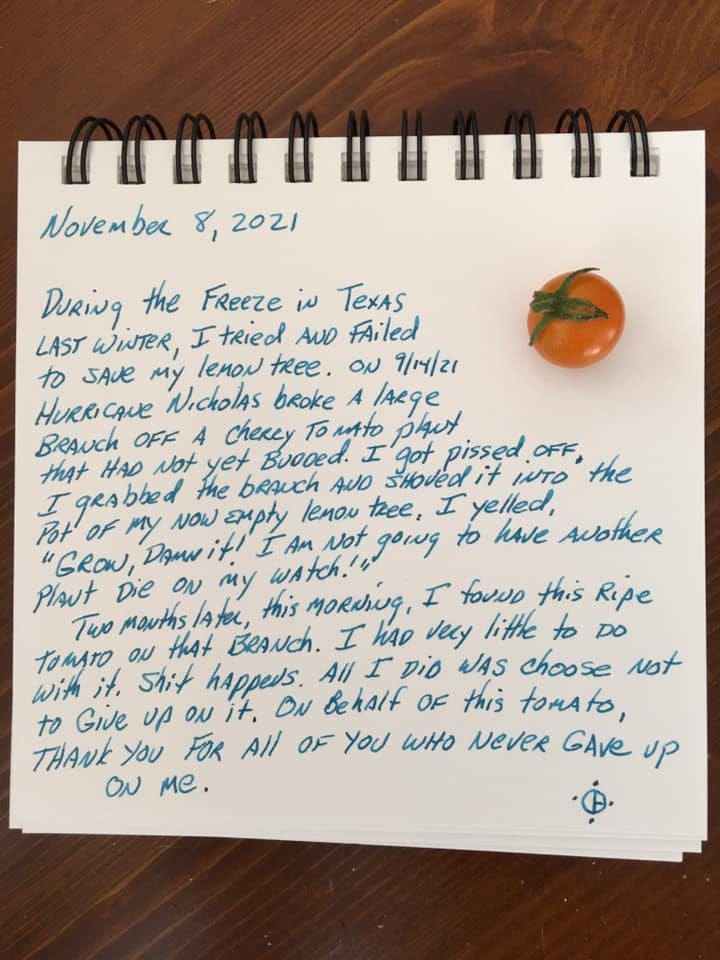 November 8, 2021
During the Freeze in Texas
last winter, I tried and failed
to save my lemon tree. On 9/14/21
Hurricane Nicholas broke a large
branch off a cherry tomato plant
that had not yet budded. I got pissed off.
I grabbed the branch and shoved it into the
pot of my now empty lemon tree. I yelled,
"Grow, Damn it! I am not going to have another
plant die on my watch!"
Two months later, this morning, I found this ripe
tomato on that branch. I had very little to do
with it. Shit happens. All I did was choose not
to give up on it. On behalf of this tomato,
thank you for all of you who never gave up
on me.